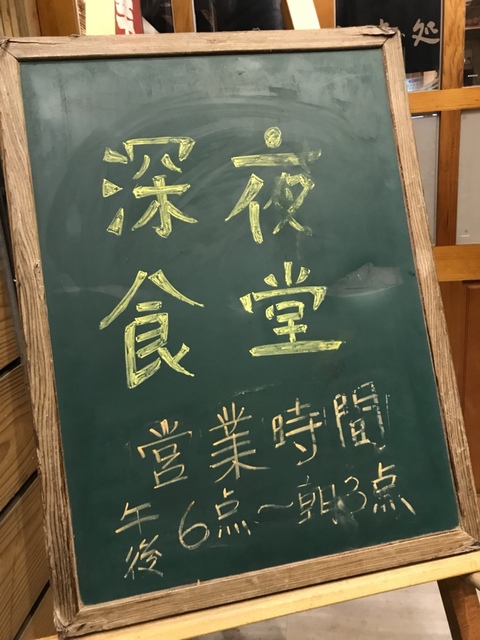 処
深夜
食堂
営業時間
午後6点～朝3点